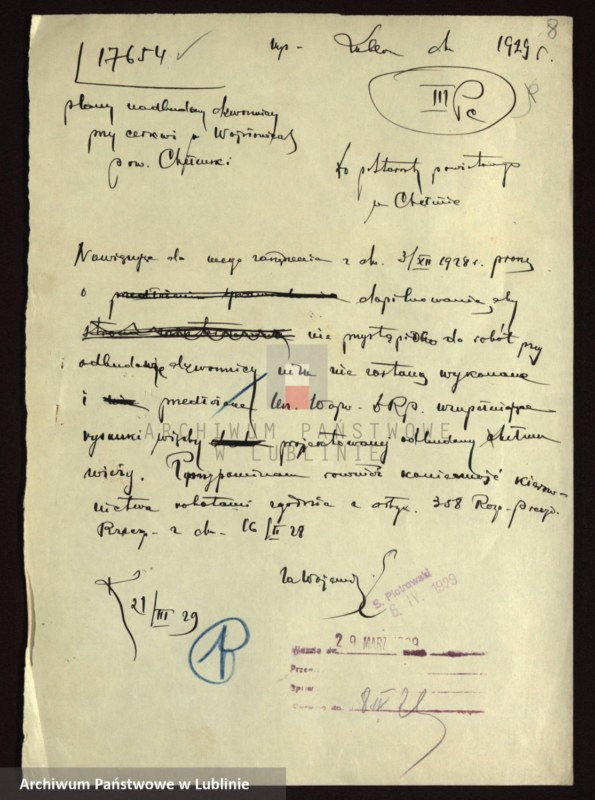 8
17654
Lublin dn. 1929 r.
III Pc
plany nadbudowy dzwonnicy
przy cerkwi w Wojsławicach
pow. Chełmski
Do Starosty powiatowego
w Chełmie
Nawiązując do mego zarządzenia z dn. 3/XII 1928 r. proszę
o dopilnowanie, aby
nie przystąpiło do robót przy
odbudowie dzwonnicy, nim nie zostaną wykonane
i przedłożone uzupełniające
rysunki więźby projektowanej odbudowy
wieży. Przypominam również konieczność kierow-
nictwa robotami zgodnie z art. 358 Rozp. Prezyd.
Rzecz. z dn. 16/II 28
Za Wojewodę
21/III 29
S. Piotrowski
6. IV. 1929
29 MARZ 1929
8 IV 29
ARCHIWUM PAŃSTWOWE
W LUBLINIE
Archiwum Państwowe w Lublinie